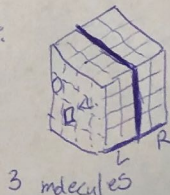 L R
3 molecules